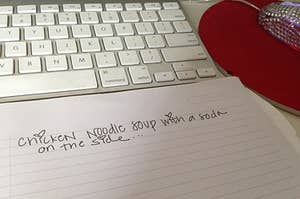 chicken Noodle Soup with a soda
on the side...